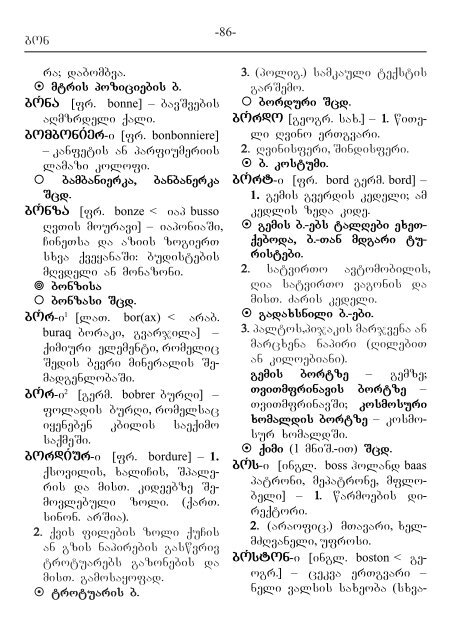 -86-
ბონ
რა; დაბომბვა.
⦿ მტრის პოზიციების ბ.
ბონა [ფრ. bonne] – ბავშვების
აღმზრდელი ქალი.
ბომბონიერ-ი [ფრ. bonbonniere]
– კანფეტის ან პარფიუმერიის
ლამაზი კოლოფი.
○ ბამბანიერკა, ბანბანერკა
შცდ.
ბონზა [ფრ. bonze < იაპ busso
ღვთის მოურავი] – იაპონიაში,
ჩინეთსა და აზიის ზოგიერთ
სხვა ქვეყანაში: ბუდისტების
მღვდელი ან მონაზონი.
◎ ბონზისა
○ ბონზასი შცდ.
ბორ-ი¹ [ლათ. bor(ax) < არაბ.
buraq ბორაკი, გვარჯილა] –
ქიმიური ელემენტი, რომელიც
შედის ბევრი მინერალის შე-
მადგენლობაში.
ბორ-ი² [გერმ. bobrer ბურღი] –
ფოლადის ბურღი, რომელსაც
იყენებენ კბილის საექიმო
საქმეში.
ბორდიურ-ი [ფრ. bordure] – 1.
ქსოვილის, ხალიჩის, შპალე-
რის და მისთ. კიდეებზე შე-
მოვლებული ზოლი. (ქართ.
სინონ. არშია).
2. ქვის ფილების ზოლი ქუჩის
ან გზის ნაპირების გასწვრივ
ტროტუარებს გაზონების და
მისთ. გამოსაყოფად.
⦿ ტროტუარის ბ.
3. (პოლიგ.) სამკაული ტექსტის
გარშემო.
○ ბორდური შცდ.
ბორდო [გეოგრ. სახ.] – 1. წითე-
ლი ღვინო ერთგვარი.
2. ღვინისფერი, შინდისფერი.
⦿ ბ. კოსტუმი.
ბორტ-ი [ფრ. bord გერმ. bord] –
1. გემის გვერდის კედელი; ამ
კედლის ზედა კიდე.
⦿ გემის ბ.-ებს ტალღები ეხეთ-
ქებოდა, ბ.-თან მდგარი ტუ-
რისტები.
2. სატვირთო ავტომობილის,
ღია სატვირთო ვაგონის და
მისთ. ძარის კედელი.
⦿ გადახსნილი ბ.-ები.
3. პალტოს,პიჯაკის მარჯვენა ან
მარცხენა ნაპირი (ღილებით
ან კილოებიანი).
გემის ბორტზე – გემზე;
თვითმფრინავის ბორტზე –
თვითმფრინავში; კოსმოსური
ხომალდის ბორტზე – კოსმო-
სურ ხომალდში.
⦿ ქიმი (1 მნიშ.-ით) შცდ.
ბოს-ი [ინგლ. boss ჰოლანდ baas
პატრონი, მეპატრონე, მფლო-
ბელი] – 1. წარმოების დი-
რექტორი.
2. (არაოფიც.) მთავარი, ხელ-
მძღვანელი, უფროსი.
ბოსტონ-ი [ინგლ. boston < გე-
ოგრ.] – ცეკვა ერთგვარი –
ნელი ვალსის სახეობა (სხვა-